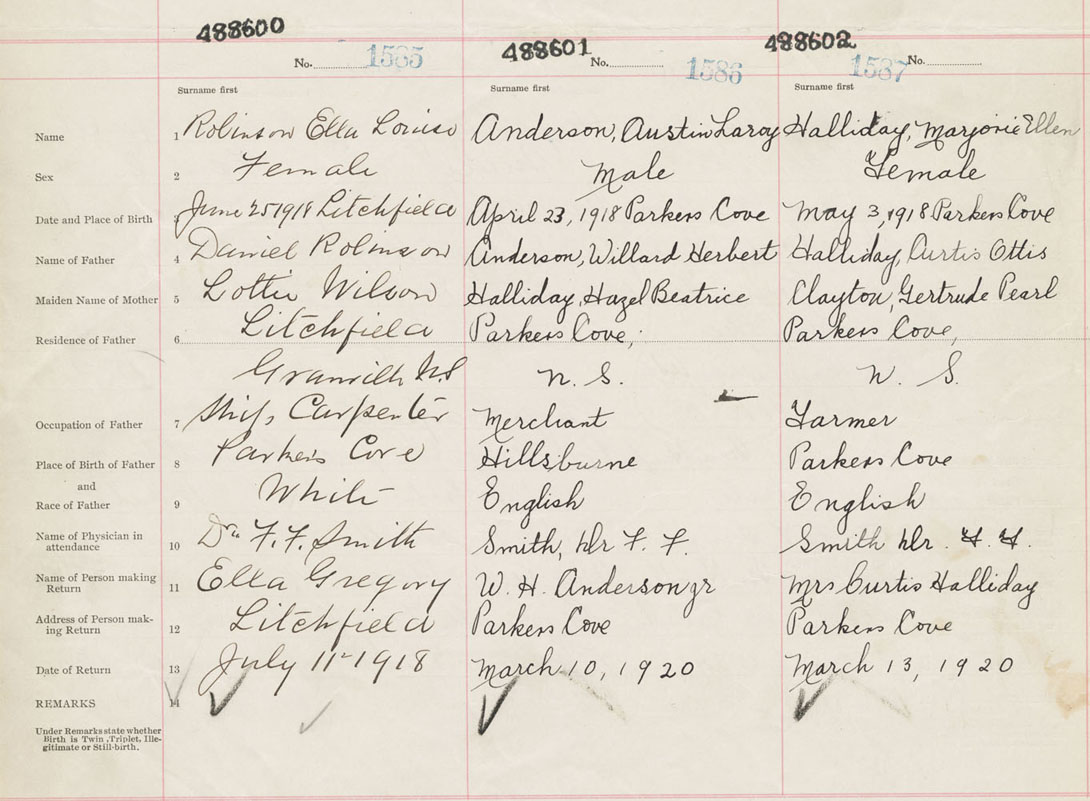 488600 488601 488602
No. 1585 No. 1586 No. 1587
Surname first Surname first Surname first
Name 1 Robinson Ella Louise Anderson, Austin Laroy Halliday, Marjorie Ellen
Sex 2 Female Male Female
Date and Place of Birth 3 June 25 1918 Litchfield April 23, 1918 Parkers Cove May 3, 1918 Parkers Cove
Name of Father 4 Daniel Robinson Anderson, Willard Herbert Halliday, Curtis Ottis
Maiden Name of Mother 5 Lottie Wilson Halliday, Hazel Beatrice Clayton, Gertrude Pearl
Residence of Father 6 Litchfield Parkers Cove, Parkers Cove,
Granville N.S N. S. N. S.
Occupation of Father 7 Ship Carpenter Merchant Farmer
Place of Birth of Father 8 Parkers Cove Hillsburne Parkers Cove
and
Race of Father 9 White English English
Name of Physician in
attendance 10 Dr F. F. Smith Smith, Dr F. F. Smith Dr. F. F.
Name of Person making
Return 11 Ella Gregory W. H. Anderson jr Mrs Curtis Halliday
Address of Person mak-
ing Return 12 Litchfield Parkers Cove Parkers Cove
Date of Return 13 July 11 - 1918 March 10, 1920 March 13, 1920
REMARKS 14
Under Remarks state whether
Birth is Twin, Triplet, Ille-
gitimate or Still-birth.